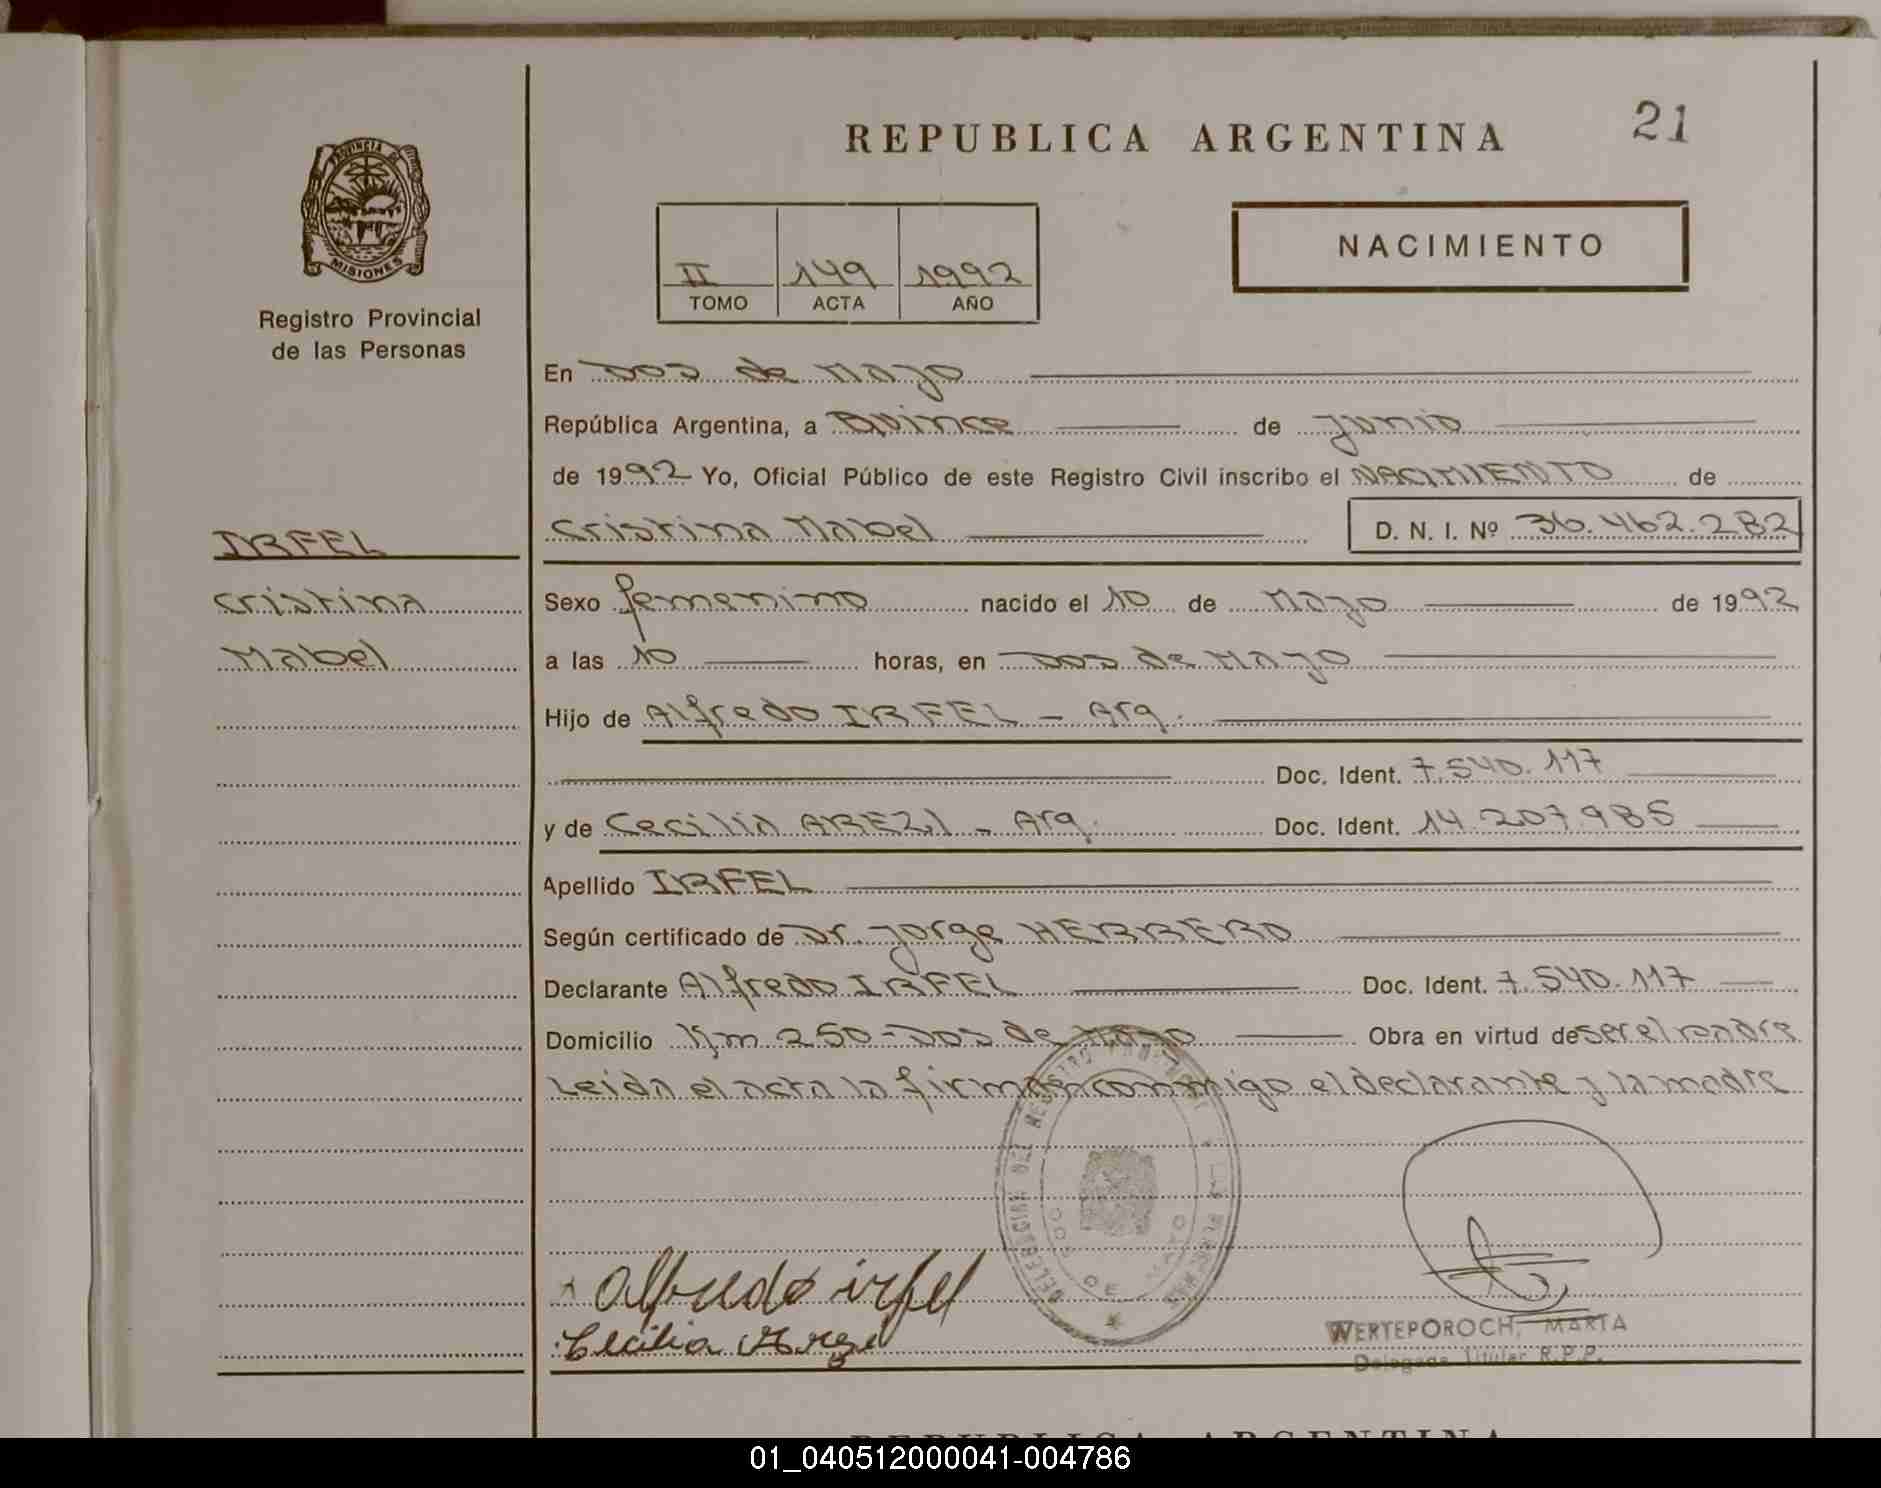 REPUBLICA ARGENTINA
21
PROVINCIA DE
MISIONES
Registro Provincial
de las Personas
II 149 1992
TOMO ACTA AÑO
NACIMIENTO
En Dos de Mayo
República Argentina, a Quince de Junio
de 1992 Yo, Oficial Público de este Registro Civil inscribo el NACIMIENTO de
IRFEL
Cristina Mabel D. N. I. Nº 36.462.282
Cristina
Sexo femenino nacido el 10 de Mayo de 1992
Mabel
a las 10 horas, en Dos de Mayo
Hijo de Alfredo IRFEL - Arg.
Doc. Ident. 7.540.117
y de Cecilia AREZI - Arg. Doc. Ident. 14.207.985
Apellido IRFEL
Según certificado de Dr. Jorge HERRERO
Declarante Alfredo IRFEL Doc. Ident. 7.540.117
Domicilio Km 250 - Dos de Mayo Obra en virtud de ser el padre
Leida el acta la firman conmigo el declarante y la madre
DELEGACION DEL REGISTRO PROVINCIAL DE LAS PERSONAS
DOS DE MAYO
Alfredo irfel
Cecilia
WERTEPOROCH, MARTA
Delegada Titular R.P.P.
REPUBLICA ARGENTINA
01_040512000041-004786